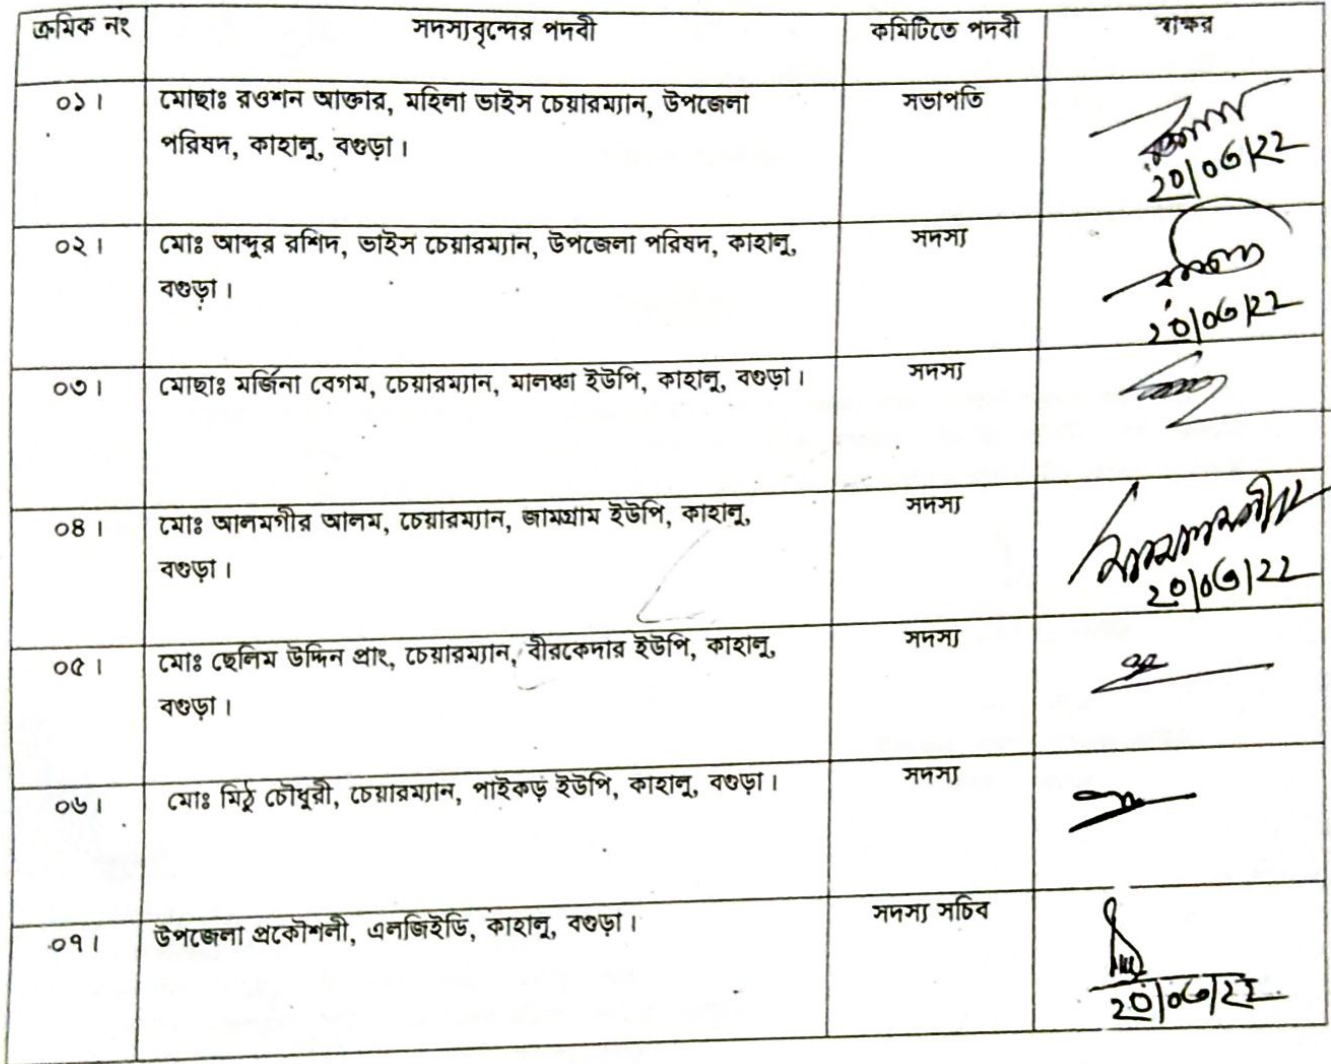 ক্রমিক নং সদস্যবৃন্দের পদবী কমিটিতে পদবী স্বাক্ষর
০১। মোছাঃ রওশন আক্তার, মহিলা ভাইস চেয়ারম্যান, উপজেলা সভাপতি
পরিষদ, কাহালু, বগুড়া।
২০/০৬/২২
০২। মোঃ আব্দুর রশিদ, ভাইস চেয়ারম্যান, উপজেলা পরিষদ, কাহালু, সদস্য
বগুড়া।
২০/০৬/২২
০৩। মোছাঃ মর্জিনা বেগম, চেয়ারম্যান, মালঞ্চা ইউপি, কাহালু, বগুড়া। সদস্য
০৪। মোঃ আলমগীর আলম, চেয়ারম্যান, জামগ্রাম ইউপি, কাহালু, সদস্য
বগুড়া।
২০/০৬/২২
০৫। মোঃ ছেলিম উদ্দিন প্রাং, চেয়ারম্যান, বীরকেদার ইউপি, কাহালু, সদস্য
বগুড়া।
০৬। মোঃ মিঠু চৌধুরী, চেয়ারম্যান, পাইকড় ইউপি, কাহালু, বগুড়া। সদস্য
০৭। উপজেলা প্রকৌশলী, এলজিইডি, কাহালু, বগুড়া। সদস্য সচিব
২০/০৬/২২